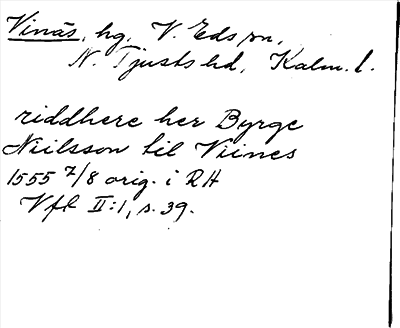 Vinäs, hg, V. Eds sn,
N. Tjusts hd, Kalm. l.
riddhere her Byrge
Niilsson til Viines
1555 7/8 orig. i RH
Vfl II:1, s. 39.